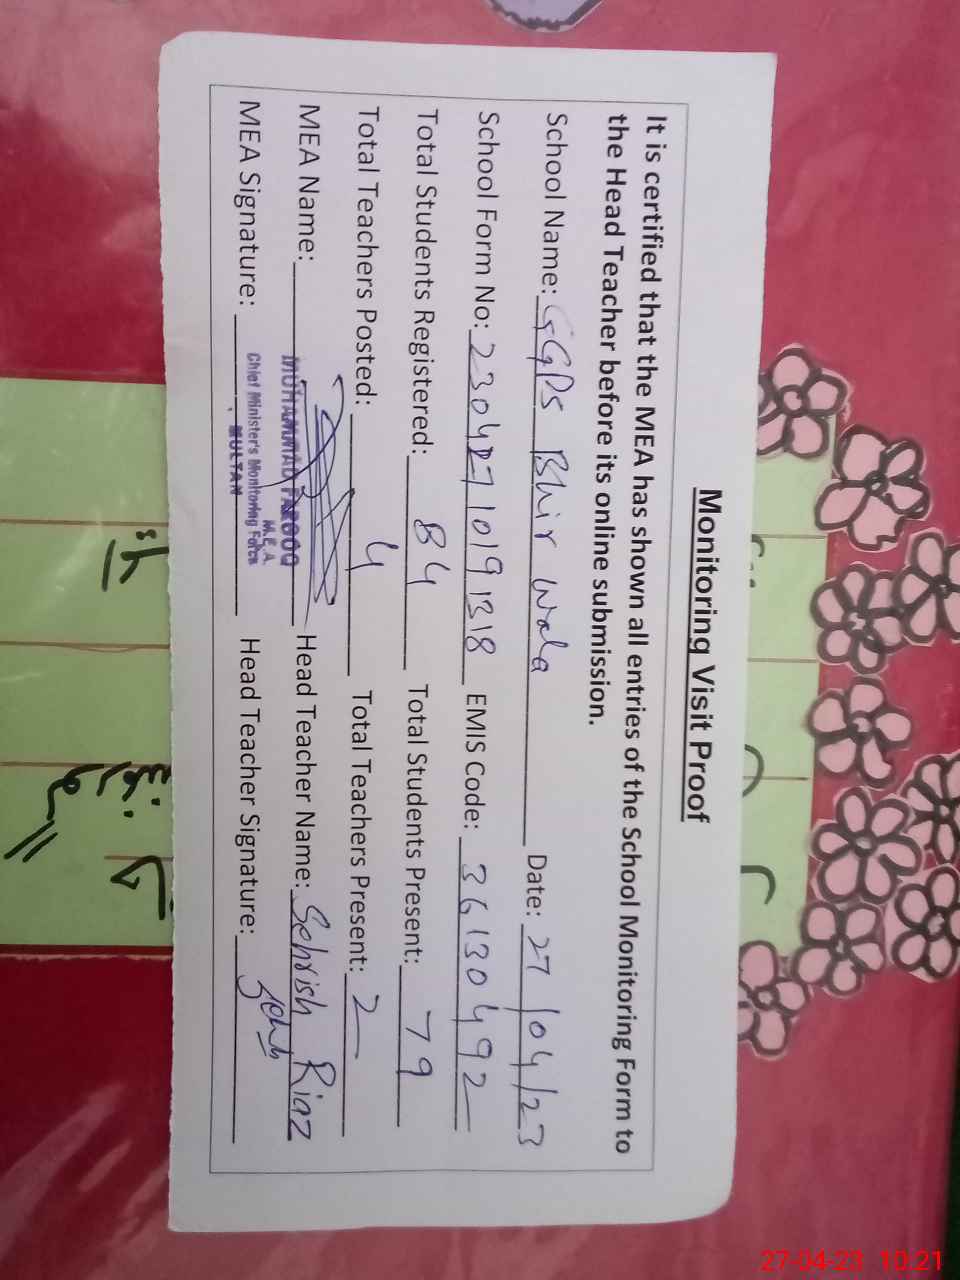 Monitoring Visit Proof
It is certified that the MEA has shown all entries of the School Monitoring Form to
the Head Teacher before its online submission.
School Name: GGPS Bhir Wala Date: 27/04/23
School Form No: 2304271019 1318 EMIS Code: 36130492
Total Students Registered: 84 Total Students Present: 79
Total Teachers Posted: 4 Total Teachers Present: 2
MEA Name: MUHAMMAD FAROOQ Head Teacher Name: Sehrish Riaz
M.E.A.
MEA Signature: Chief Minister's Monitoring Force Head Teacher Signature:
MULTAN
27-04-23 10:21